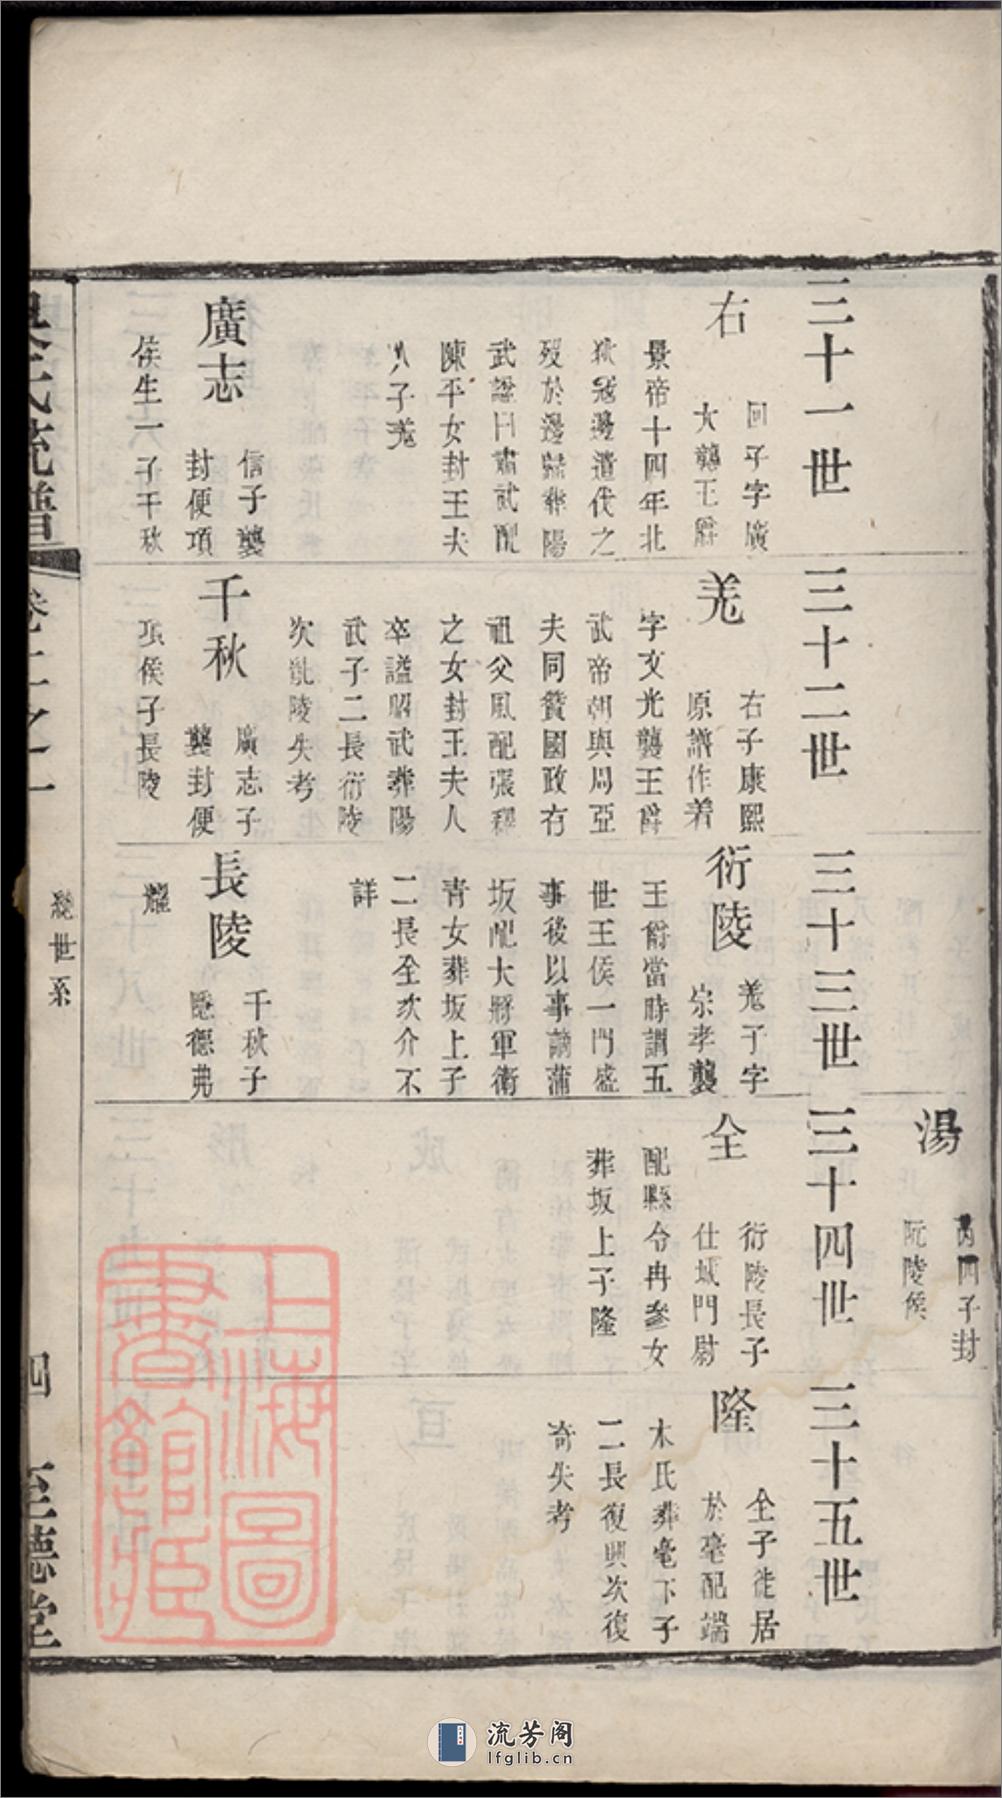 湯
芮四子封
阮陵侯
三十一世
右
回子字廣
大襲王爵
景帝十四年北
狄冦邊遣代之
歿於邊歸葬陽
武諡曰肅武配
陳平女封王夫
人子羗
廣志
信子襲
封便項
侯生一子千秋
三十二世
羗
右子康熙
原譜作着
字文光襲王爵
武帝朝與周亞
夫同贊國政有
祖父風配張釋
之女封王夫人
卒諡昭武葬陽
武子二長衍陵
次凱陵失考
千秋
廣志子
襲封便
項侯子長陵
三十三世
衍陵
羗子字
宗孝襲
王爵當時謂五
世王侯一門盛
事後以事謫蒲
坂配大將軍衛
青女葬坂上子
二長全次介不
詳
長陵
千秋子
隱德弗
耀
三十四世
全
衍陵長子
仕城門尉
配縣令冉參女
葬坂上子隆
三十五世
隆
全子徙居
於亳配端
木氏葬亳下子
二長復興次復
奇失考
吳氏統譜
卷二之一
總世系
四
至德堂
上海圖
書館藏
流芳阁
lfglib.cn